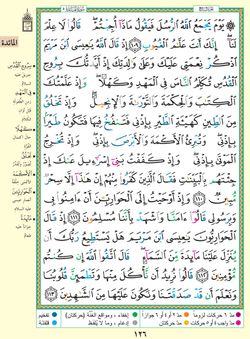 المائدة
يَوْمَ يَجْمَعُ ٱللَّهُ ٱلرُّسُلَ فَيَقُولُ مَاذَآ أُجِبْتُمْ قَالُوا۟ لَا عِلْمَ
لَنَآ إِنَّكَ أَنتَ عَلَّٰمُ ٱلْغُيُوبِ ١٠٩ إِذْ قَالَ ٱللَّهُ يَٰعِيسَى ٱبْنَ مَرْيَمَ
ٱذْكُرْ نِعْمَتِى عَلَيْكَ وَعَلَىٰ وَٰلِدَتِكَ إِذْ أَيَّدتُّكَ بِرُوحِ
ٱلْقُدُسِ تُكَلِّمُ ٱلنَّاسَ فِى ٱلْمَهْدِ وَكَهْلًا وَإِذْ عَلَّمْتُكَ
ٱلْكِتَٰبَ وَٱلْحِكْمَةَ وَٱلتَّوْرَىٰةَ وَٱلْإِنجِيلَ وَإِذْ تَخْلُقُ مِنَ
ٱلطِّينِ كَهَيْـَٔةِ ٱلطَّيْرِ بِإِذْنِى فَتَنفُخُ فِيهَا فَتَكُونُ طَيْرًۢا
بِإِذْنِى وَتُبْرِئُ ٱلْأَكْمَهَ وَٱلْأَبْرَصَ بِإِذْنِى وَإِذْ تُخْرِجُ
ٱلْمَوْتَىٰ بِإِذْنِى وَإِذْ كَفَفْتُ بَنِىٓ إِسْرَٰٓءِيلَ عَنكَ إِذْ
جِئْتَهُم بِٱلْبَيِّنَٰتِ فَقَالَ ٱلَّذِينَ كَفَرُوا۟ مِنْهُمْ إِنْ هَٰذَآ إِلَّا سِحْرٌ
مُّبِينٌ ١١٠ وَإِذْ أَوْحَيْتُ إِلَى ٱلْحَوَارِيِّۦنَ أَنْ ءَامِنُوا۟ بِى
وَبِرَسُولِى قَالُوٓا۟ ءَامَنَّا وَٱشْهَدْ بِأَنَّنَا مُسْلِمُونَ ١١١ إِذْ قَالَ
ٱلْحَوَارِيُّونَ يَٰعِيسَى ٱبْنَ مَرْيَمَ هَلْ يَسْتَطِيعُ رَبُّكَ أَن
يُنَزِّلَ عَلَيْنَا مَآئِدَةً مِّنَ ٱلسَّمَآءِ قَالَ ٱتَّقُوا۟ ٱللَّهَ إِن كُنتُم
مُّؤْمِنِينَ ١١٢ قَالُوا۟ نُرِيدُ أَن نَّأْكُلَ مِنْهَا وَتَطْمَئِنَّ قُلُوبُنَا
وَنَعْلَمَ أَن قَدْ صَدَقْتَنَا وَنَكُونَ عَلَيْهَا مِنَ ٱلشَّٰهِدِينَ ١١٣
مدّ ٦ حركات لزوماً مدّ ٢ أو ٤ أو ٦ جوازاً إخفاء، ومواقع الغنّة (حركتان) تفخيم
مدّ واجب ٤ أو ٥ حركات مدّ حركتان إدغام، وما لا يُلفظ قلقلة
١٢٦